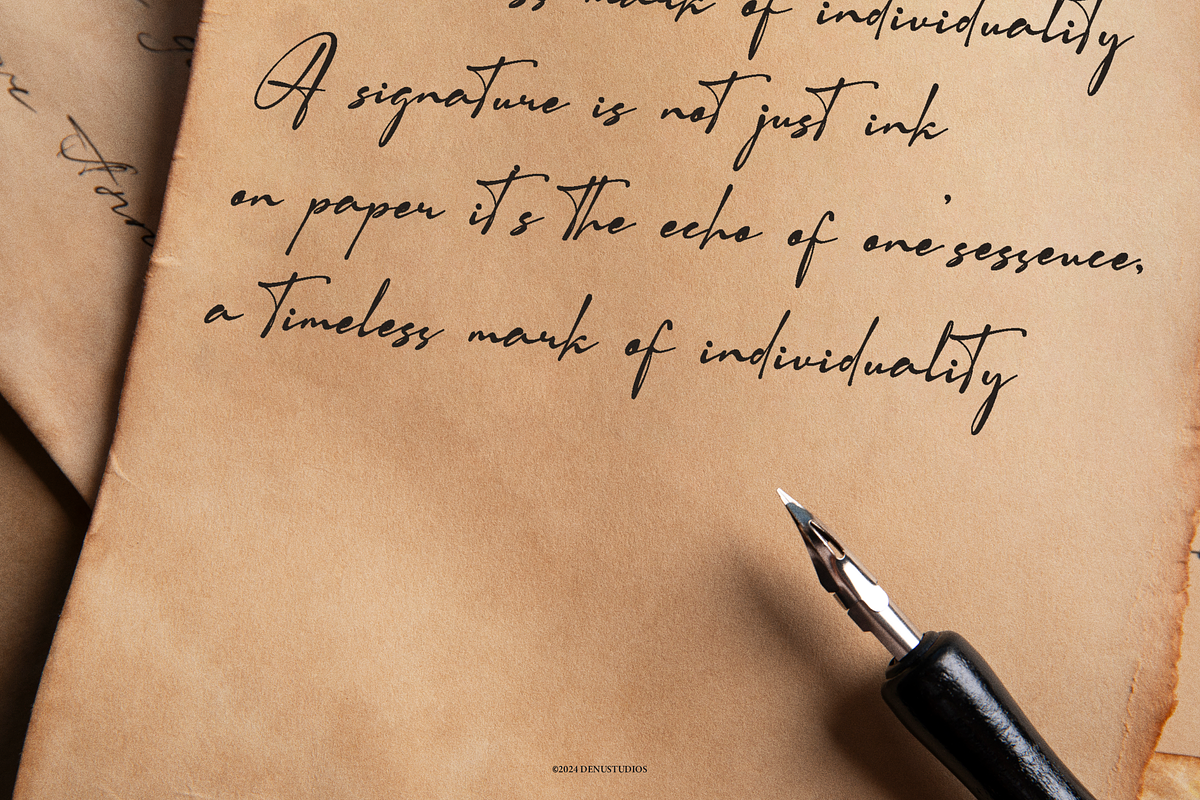 mark of individuality
A signature is not just ink
on paper it's the echo of one'sessence,
a timeless mark of individuality
©2024 DENUSTUDIOS